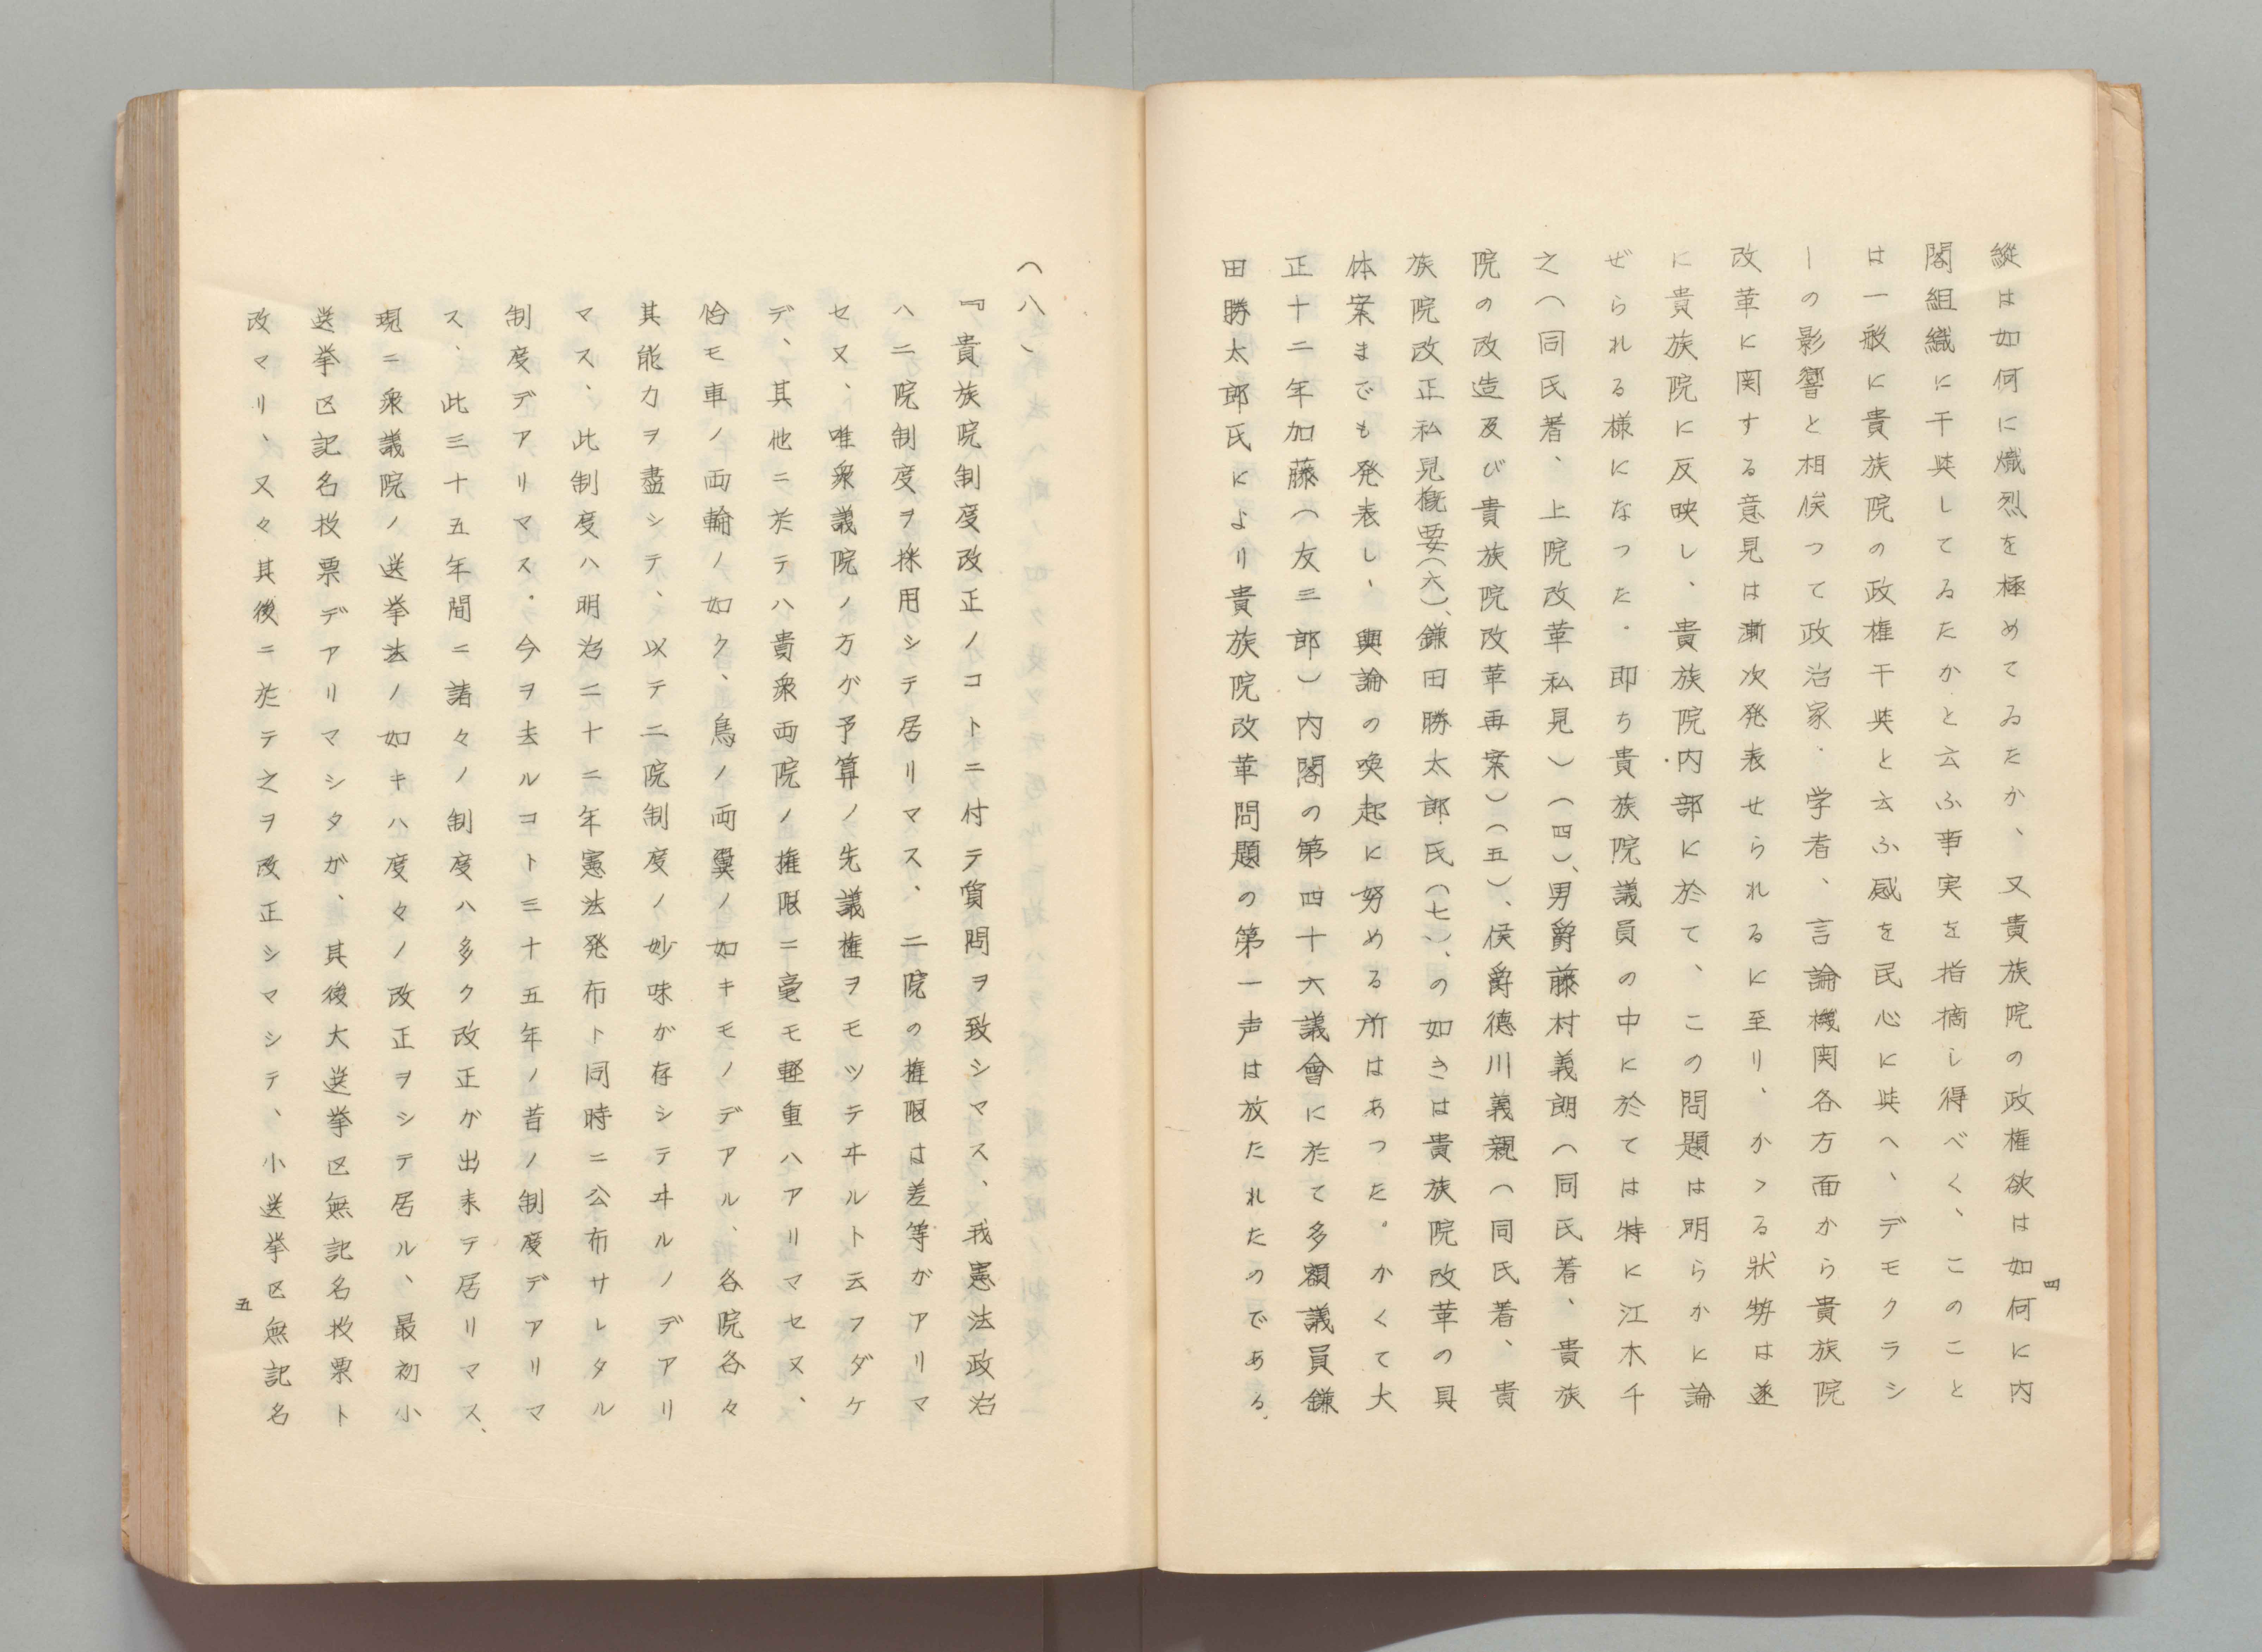 縱は如何に熾烈を極めてゐたか、又貴族院の政権欲は如何に内
閣組織に干與してゐたかと云ふ事実を指摘し得べく、このこと
は一般に貴族院の政権干與と云ふ感を民心に與へ、デモクラシ
ーの影響と相俟つて政治家・学者、言論機関各方面から貴族院
改革に関する意見は漸次発表せられるに至り、かゝる狀勢は遂
に貴族院に反映し、貴族院内部に於て、この問題は明らかに論
ぜられる様になつた．即ち貴族院議員の中に於ては特に江木千
之（同氏著、上院改革私見）（四）、男爵藤村義朗（同氏著、貴族
院の改造及び貴族院改革再案）（五）、侯爵德川義親（同氏著、貴
族院改正私見概要（六）、鎌田勝太郎氏（七）、の如きは貴族院改革の具
体案までも発表し、輿論の喚起に努める所はあつた。かくて大
正十二年加藤（友三郎）内閣の第四十六議會に於て多額議員鎌
田勝太郎氏により貴族院改革問題の第一声は放たれたのである．
四
（八）
『貴族院制度改正ノコトニ付テ質問ヲ致シマス、我憲法政治
ハ二院制度ヲ採用シテ居リマス、二院の権限は差等がアリマ
セヌ、唯衆議院ノ方ガ予算ノ先議権ヲモツテヰルト云フダケ
デ、其他ニ於テハ貴衆両院ノ権限ニ毫モ軽重ハアリマセヌ、
恰モ車ノ両輪ノ如ク、鳥ノ両翼ノ如キモノデアル、各院各々
其能力ヲ盡シテ、以テ二院制度ノ妙味が存シテヰルノデアリ
マス、此制度ハ明治二十二年憲法発布ト同時ニ公布サレタル
制度デアリマス．今ヲ去ルコト三十五年ノ昔ノ制度デアリマ
ス、此三十五年間ニ諸々ノ制度ハ多ク改正ガ出来テ居リマス、
現ニ衆議院ノ選挙法ノ如キハ度々ノ改正ヲシテ居ル、最初小
選挙区記名投票デアリマシタが、其後大選挙区無記名投票ト
改マリ、又々其後ニ於テ之ヲ改正シマシテ、小選挙区無記名
五